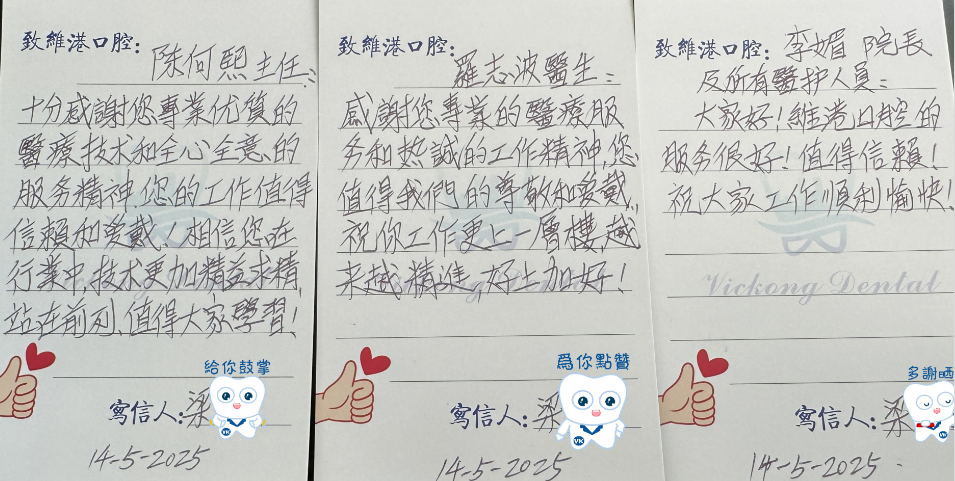 致維港口腔：
陳何熙主任：
十分感謝您專業优質的
醫療技术和全心全意的
服务精神.您的工作值得
信賴和爱戴！相信您在
行業中,技术更加精益求精,
站在前列、值得大家學習！
Vickong Dental
给你鼓掌
VK
寫信人：梁
14-5-2025
致維港口腔：
羅志波醫生：
感謝您專業的醫療服
务和热誠的工作精神,您
值得我們的尊敬和爱戴,
祝你工作更上一層樓,越
来越精進,好上加好！
Vickong Dental
爲你點贊
VK
寫信人：梁
14-5-2025
致維港口腔：李媚 院長
及所有醫护人員：
大家好！維港口腔的
服务很好！值得信賴！
祝大家工作順利愉快！
Vickong Dental
多謝晒
VK
寫信人：梁
14-5-2025.